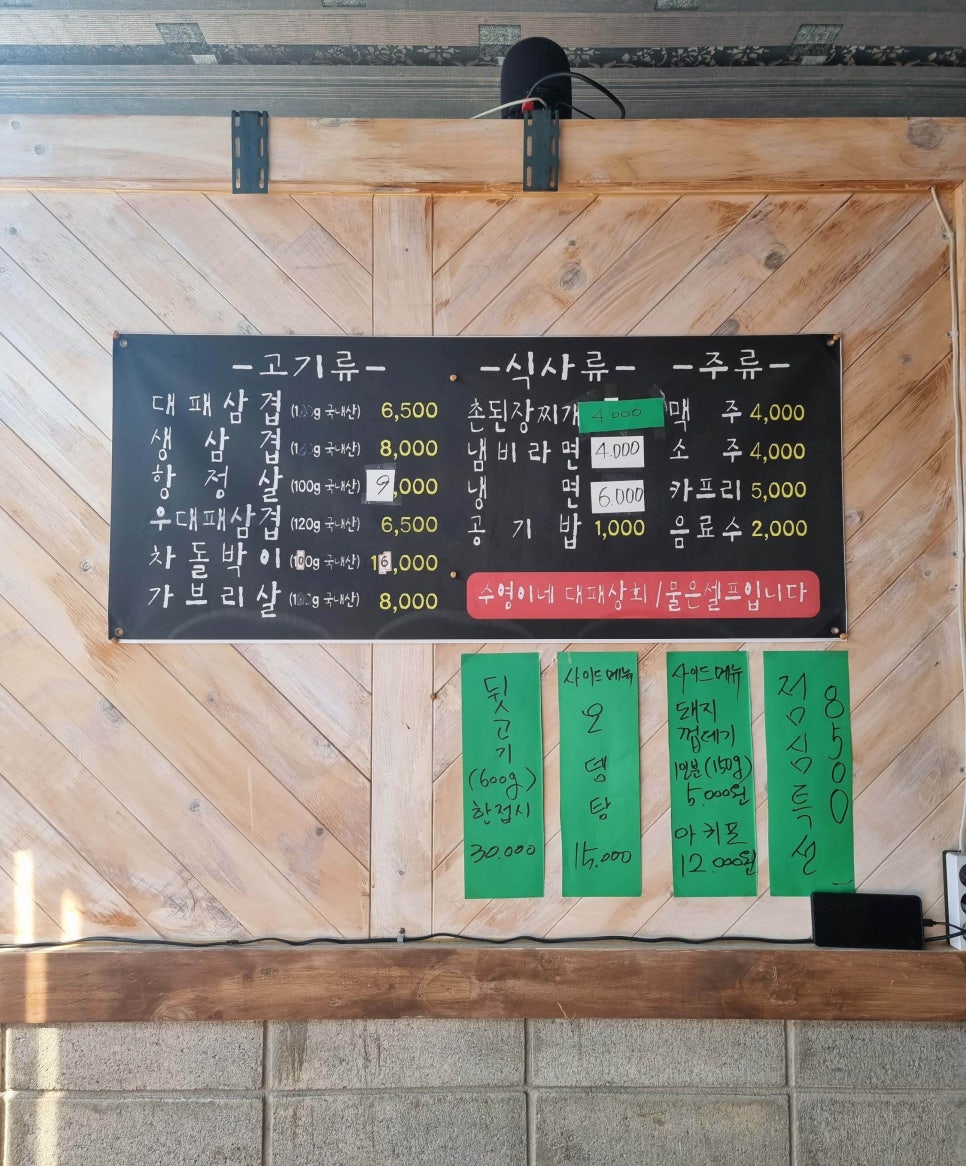 -고기류-
대패삼겹 (1 g 국내산) 6,500
생삼겹 (1 g 국내산) 8,000
항정살 (100g 국내산) 9,000
우대패삼겹 (120g 국내산) 6,500
차돌박이 (100g 국내산) 16,000
가브리살 (1 g 국내산) 8,000
-식사류-
촌된장찌개 4.000
냄비라면 4.000
냉면 6.000
공기밥 1,000
-주류-
맥주 4,000
소주 4,000
카프리 5,000
음료수 2,000
수영이네 대패상회 / 물은셀프입니다
뒷고기
(600g)
한접시
30.000
사이드메뉴
오뎅탕
15,000
사이드메뉴
돼지
껍데기
1인분(150g)
5.000원
12.000원
점심특선
8500